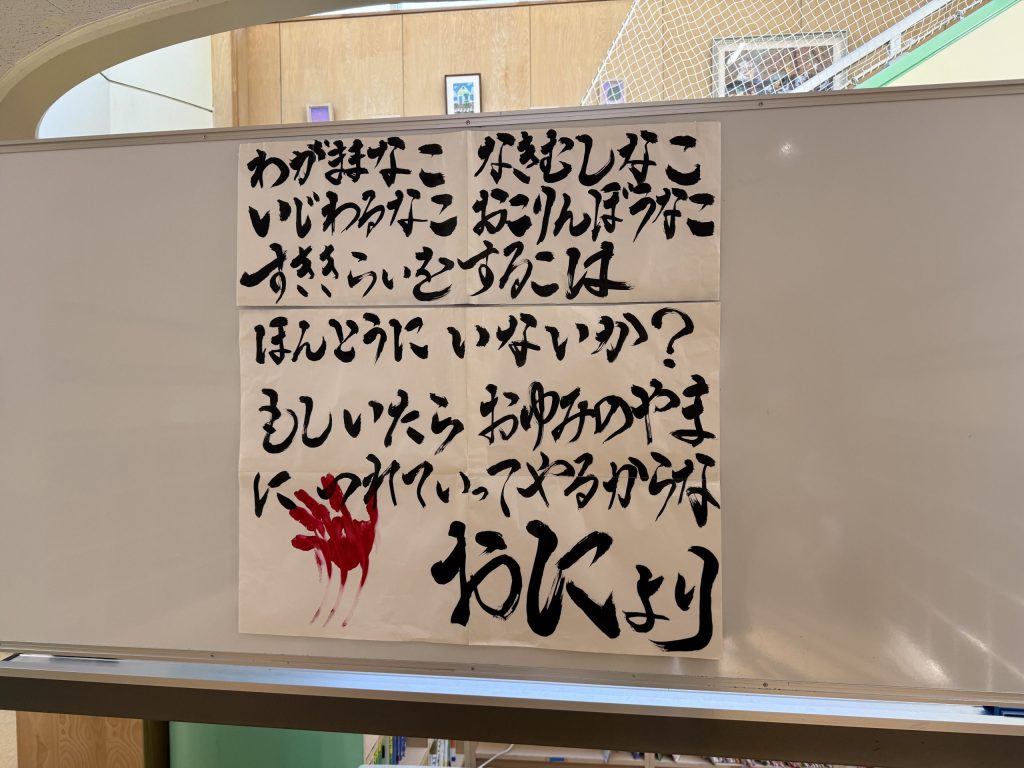 わがままなこ なきむしなこ
いじわるなこ おこりんぼうなこ
すききらいをするこは
ほんとうに いないか?
もしいたら おゆみのやま
に つれていってやるからな
おにより